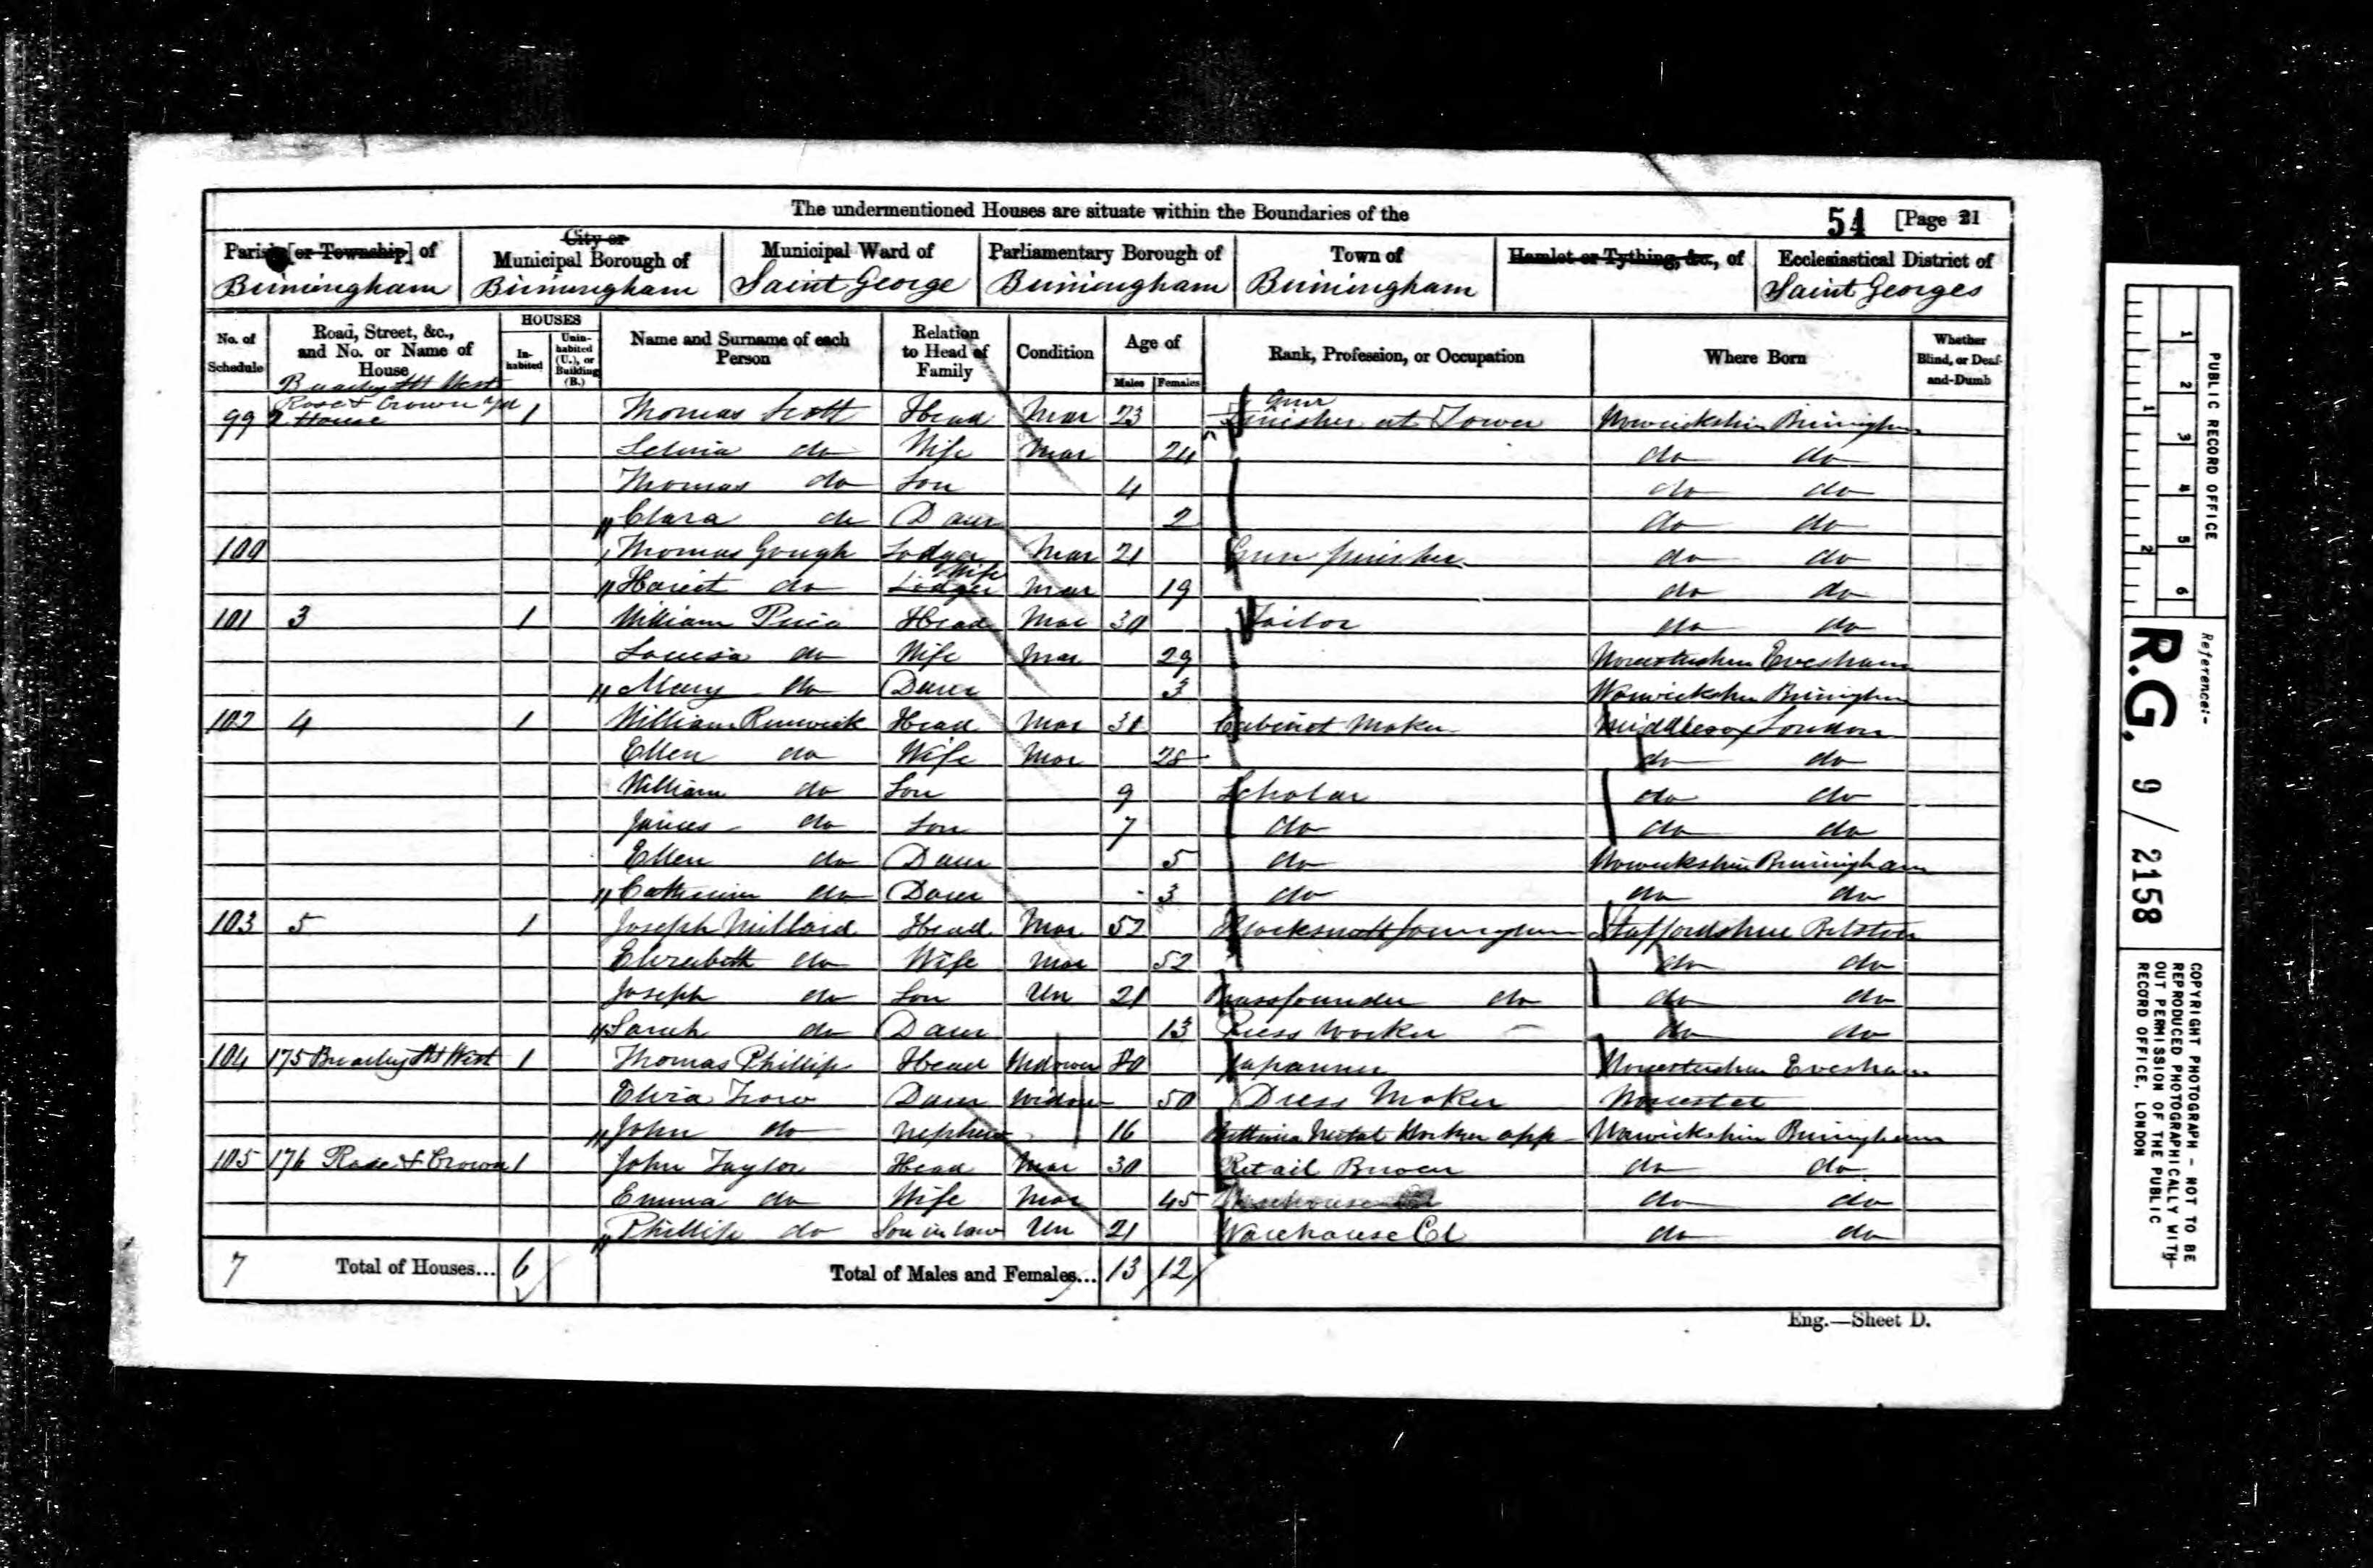 The undermentioned Houses are situate within the Boundaries of the
54 [Page 21
Parish [or Township] of
City or Municipal Borough of
Municipal Ward of
Parliamentary Borough of
Town of
Hamlet or Tything, &c., of
Ecclesiastical District of
Birmingham Birmingham Saint George Birmingham Birmingham Saint Georges
No. of Schedule
Road, Street, &c., and No. or Name of House
HOUSES
In-habited
Unin-habited (U.), or Building (B.)
Name and Surname of each Person
Relation to Head of Family
Condition
Age of
Males Females
Rank, Profession, or Occupation
Where Born
Whether Blind, or Deaf-and-Dumb
Brearley St West
Rose & Crown yd Gun
99 2 House 1 Thomas Scott Head Mar 23 Finisher at Tower Warwickshire Birmingham
do Wife Mar 24 do do
Thomas do Son 4 do do
Clara do Daur 2 do do
100 Thomas Gough Lodger Mar 21 Gun finisher do do
Wife
Hariet do Lodger Mar 19 do do
101 3 1 William Price Head Mar 30 Tailor do do
Louisa do Wife Mar 29 Worcestershire Evesham
Mary do Daur 3 Warwickshire Birmingham
102 4 1 William Renwick Head Mar 31 Cabinet Maker Middlesex London
Ellen do Wife Mar 28 do do
William do Son 9 Scholar do do
James do Son 7 do do do
Ellen do Daur 5 do Warwickshire Birmingham
Catherine do Daur 3 do do do
103 5 1 Joseph Millard Head Mar 52 Staffordshire Bilston
Elizabeth do Wife Mar 52 do do
Joseph do Son Un 21 Brassfounder do do do
Sarah do Daur 13 Press Worker do do
104 175 Brearley St West 1 Thomas Phillips Head Widower Japanner Worcestershire Evesham
Daur Widow 50 Dress Maker Worcester
John do Nephew 16 Brittania Metal Worker app Warwickshire Birmingham
105 176 Rose & Crown 1 John Taylor Head Mar 30 Retail Brewer do do
Emma do Wife Mar 45 do do
Phillip do Son in law Un 21 Warehouse Cl do do
7 Total of Houses... 6 Total of Males and Females... 13 12
Eng.—Sheet D.
1 2 3 4 5 6
1 2
PUBLIC RECORD OFFICE
Reference:-
R.G. 9/2158
COPYRIGHT PHOTOGRAPH - NOT TO BE
REPRODUCED PHOTOGRAPHICALLY WITH-
OUT PERMISSION OF THE PUBLIC
RECORD OFFICE, LONDON